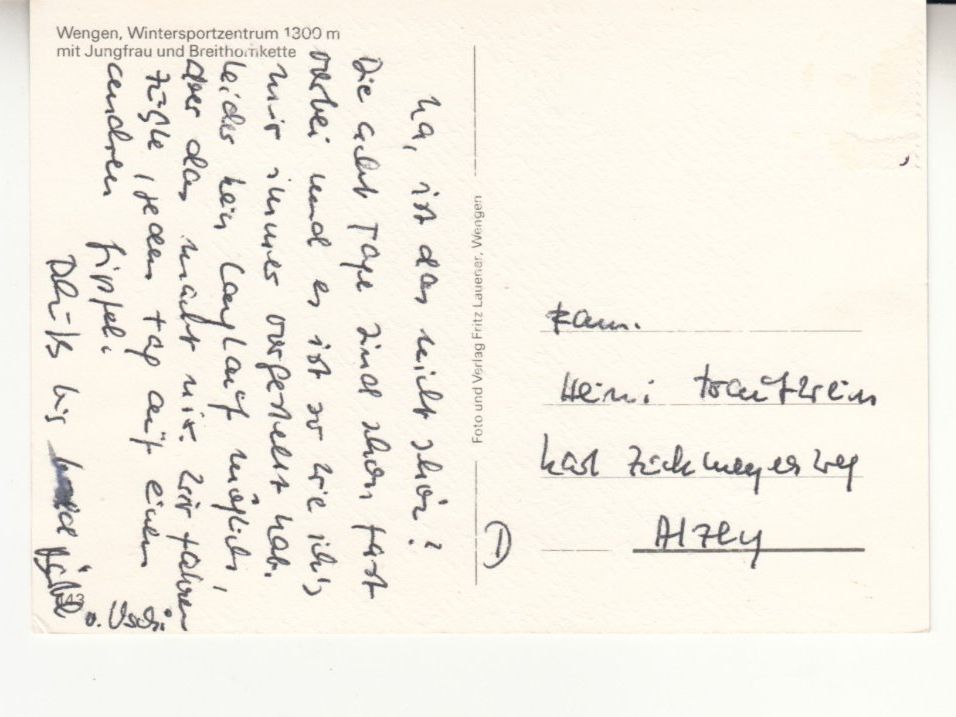 Wengen, Wintersportzentrum 1300 m
mit Jungfrau und Breithornkette
Na, ist das nicht schön?
Die acht Tage sind schon fast
vorbei und es ist so wie ich's
mir immer vorgestellt hab.
Leider kein Langlauf möglich,
aber das macht nix. Wir fahren
züftle, jeden Tag auf einen
andren Gipfel.
Tschüß bis bald
u. Uschi
43
Foto und Verlag Fritz Lauener, Wengen
Fam.
Heini Trautwein
Karl Zuckmayerweg
Alzey
D